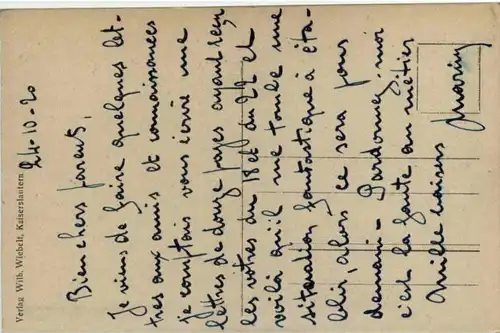 24-10-20
Bien chers parents,
Je viens de faire quelques let-
tres aux amis et connaissances
je comptais vous écrire une
lettres de douze pages ayant reçu
les vôtres du 18 et du 22 et
voilà qu'il me tombe une
situation fantastique à éta-
blir, alors ce sera pour
demain - Pardonnez-moi
c'est la faute au métier
Mille baisers
Verlag Wilh. Wiebelt, Kaiserslautern